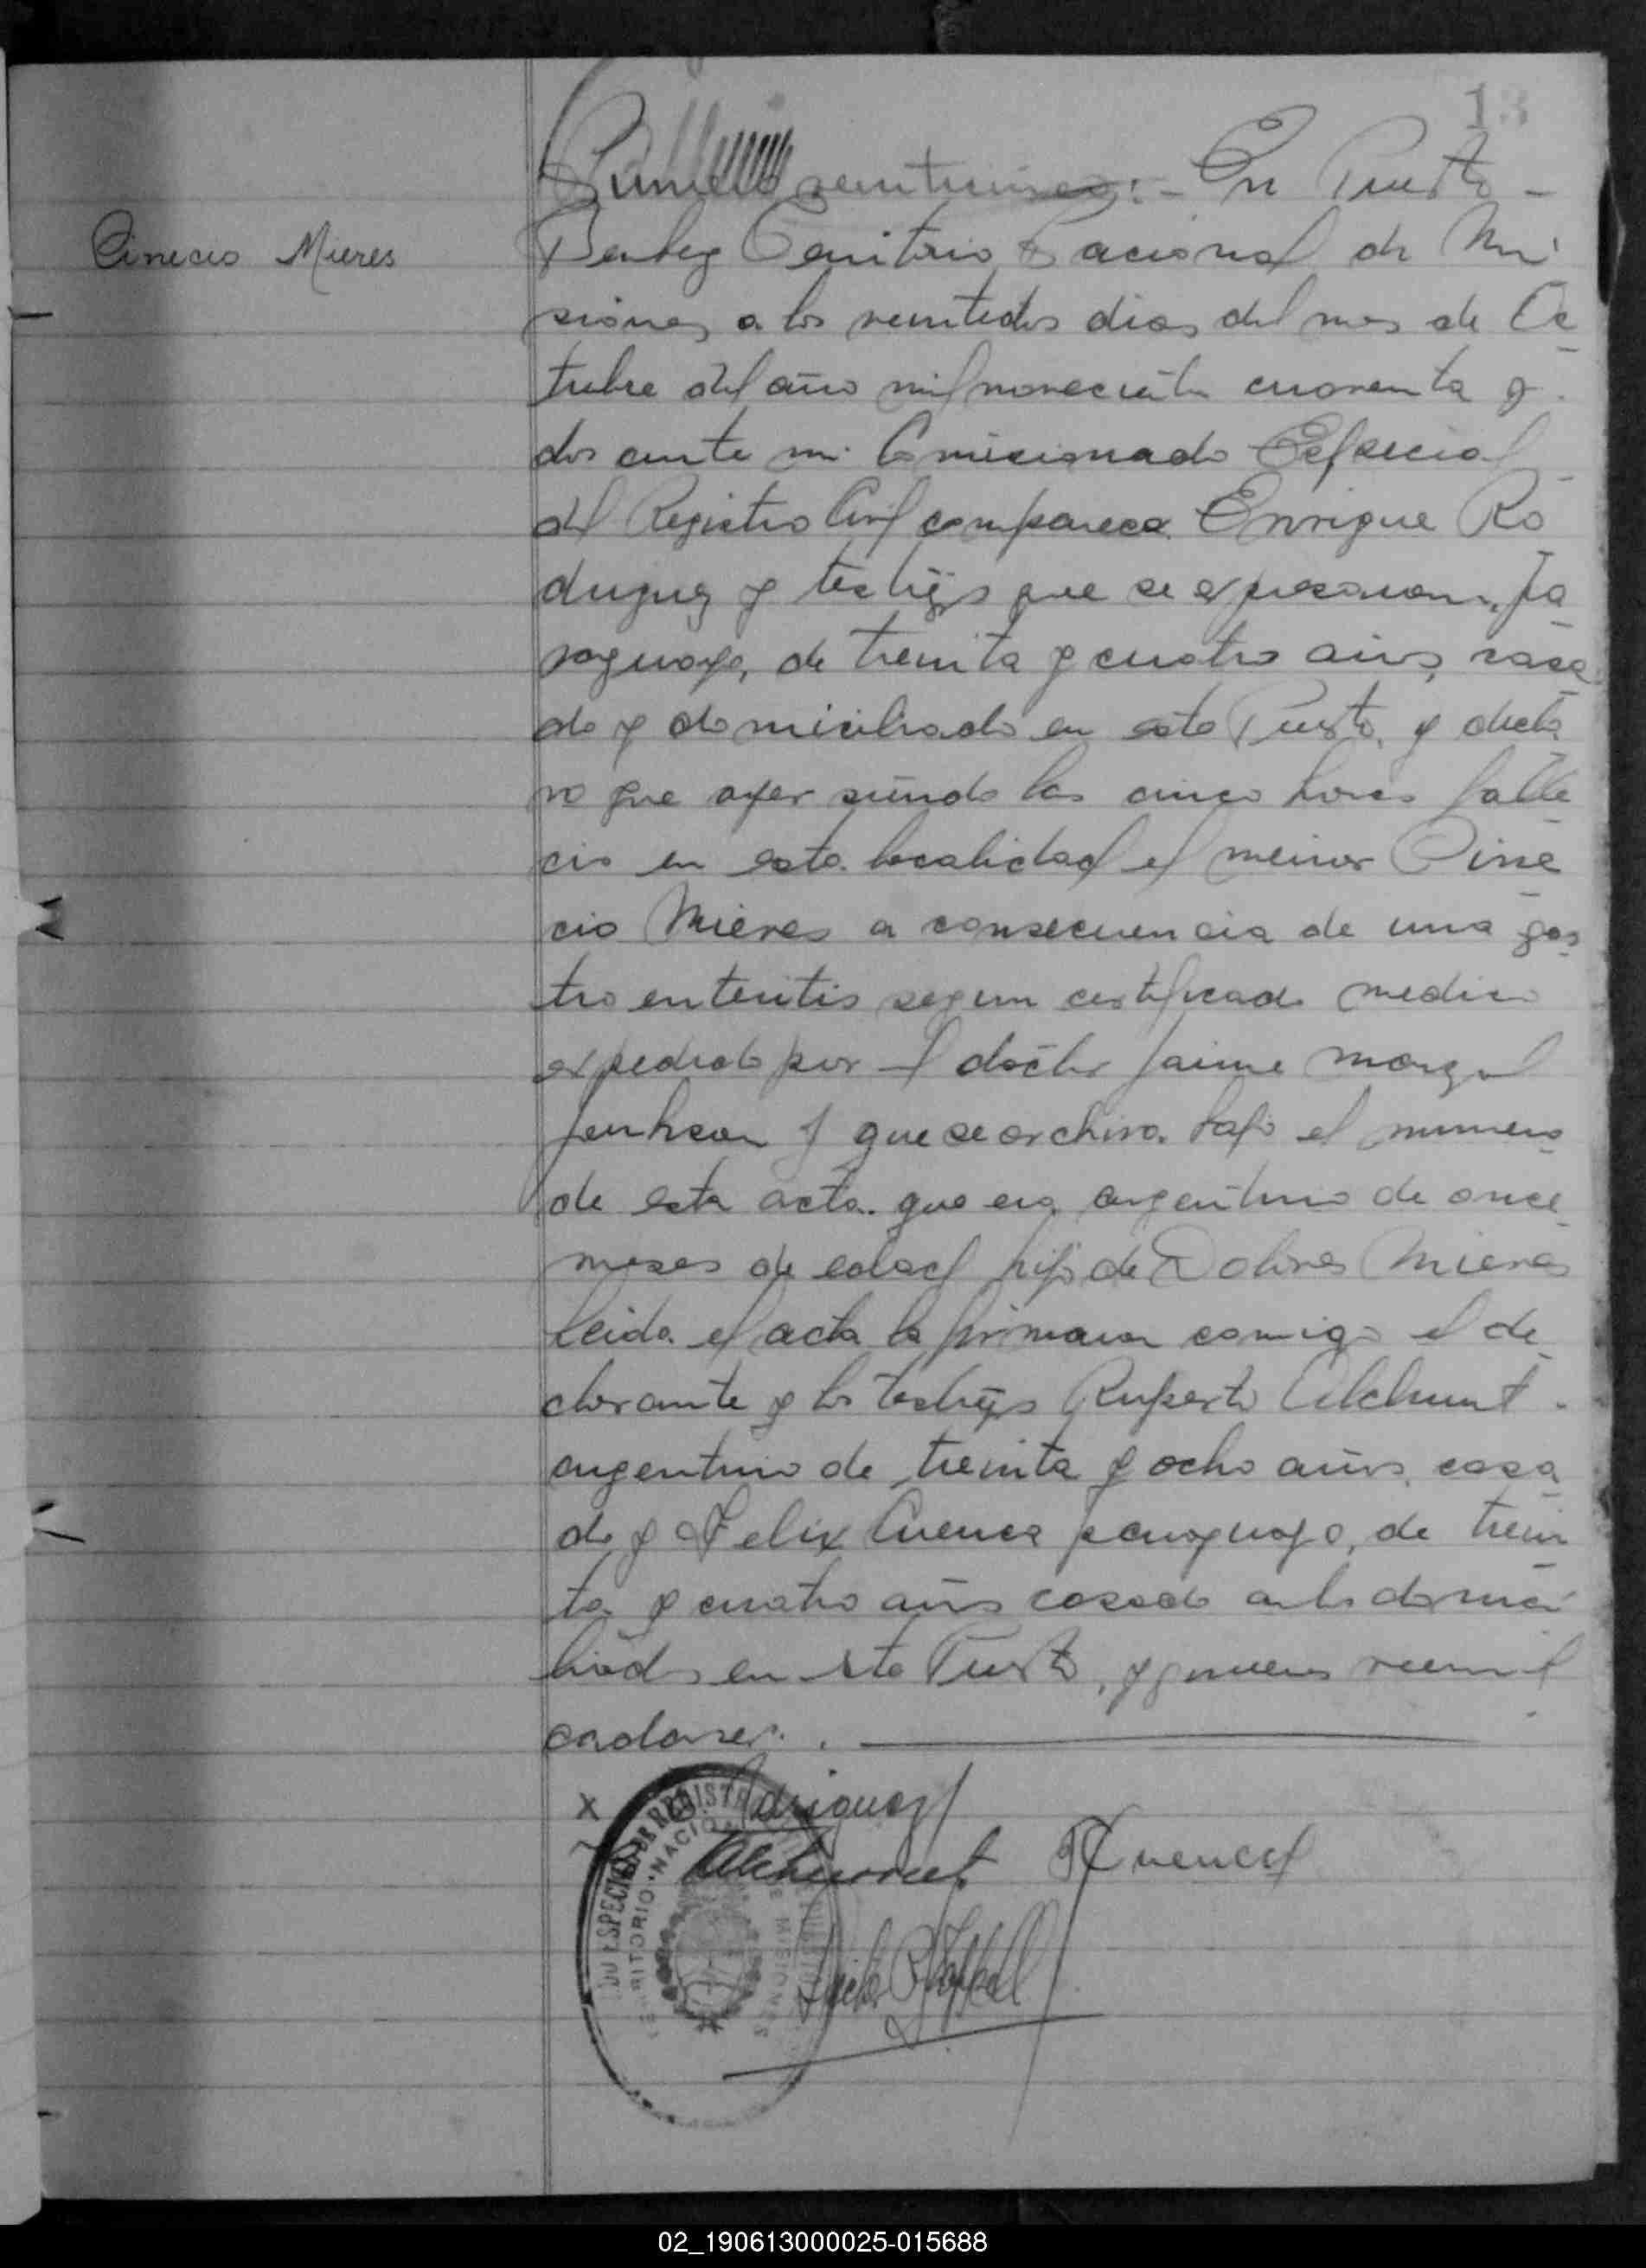 13
Numero veinticinco:- En Puerto -
Cinecio Mieres
Bemberg Territorio Nacional de Mi
siones a los veintidos dias del mes de Oc
tubre del año mil novecientos cuarenta y
dos ante mi Comicionado Especial
del Registro Civil comparece Enrique Ro
driguez y testigos que se expresaran, pa
raguayo, de treinta y cuatro años, casa
do y domiciliado en este Puerto, y decla
ro que ayer siendo las cinco horas falle
cio en esta localidad el menor Cine
cio Mieres a consecuencia de una gas
tro enteritis segun certificado medico
expedido por el doctor Jaime
y que se archiva bajo el numero
de esta acta. que era argentino de once
meses de edad hijo de Dolores Mieres
Leida el acta la firmaron comigo el de
clarante y los testigos Ruperto Alchurut.
argentino de treinta y ocho años, casa
do y Felix Cuenca paraguayo, de trein
ta y cuatro años casado ambos domici
liados en este Puerto, y quienes vieron el
cadaver. .
X Rodriguez
Alchurrut FCuenca
02_190613000025-015688